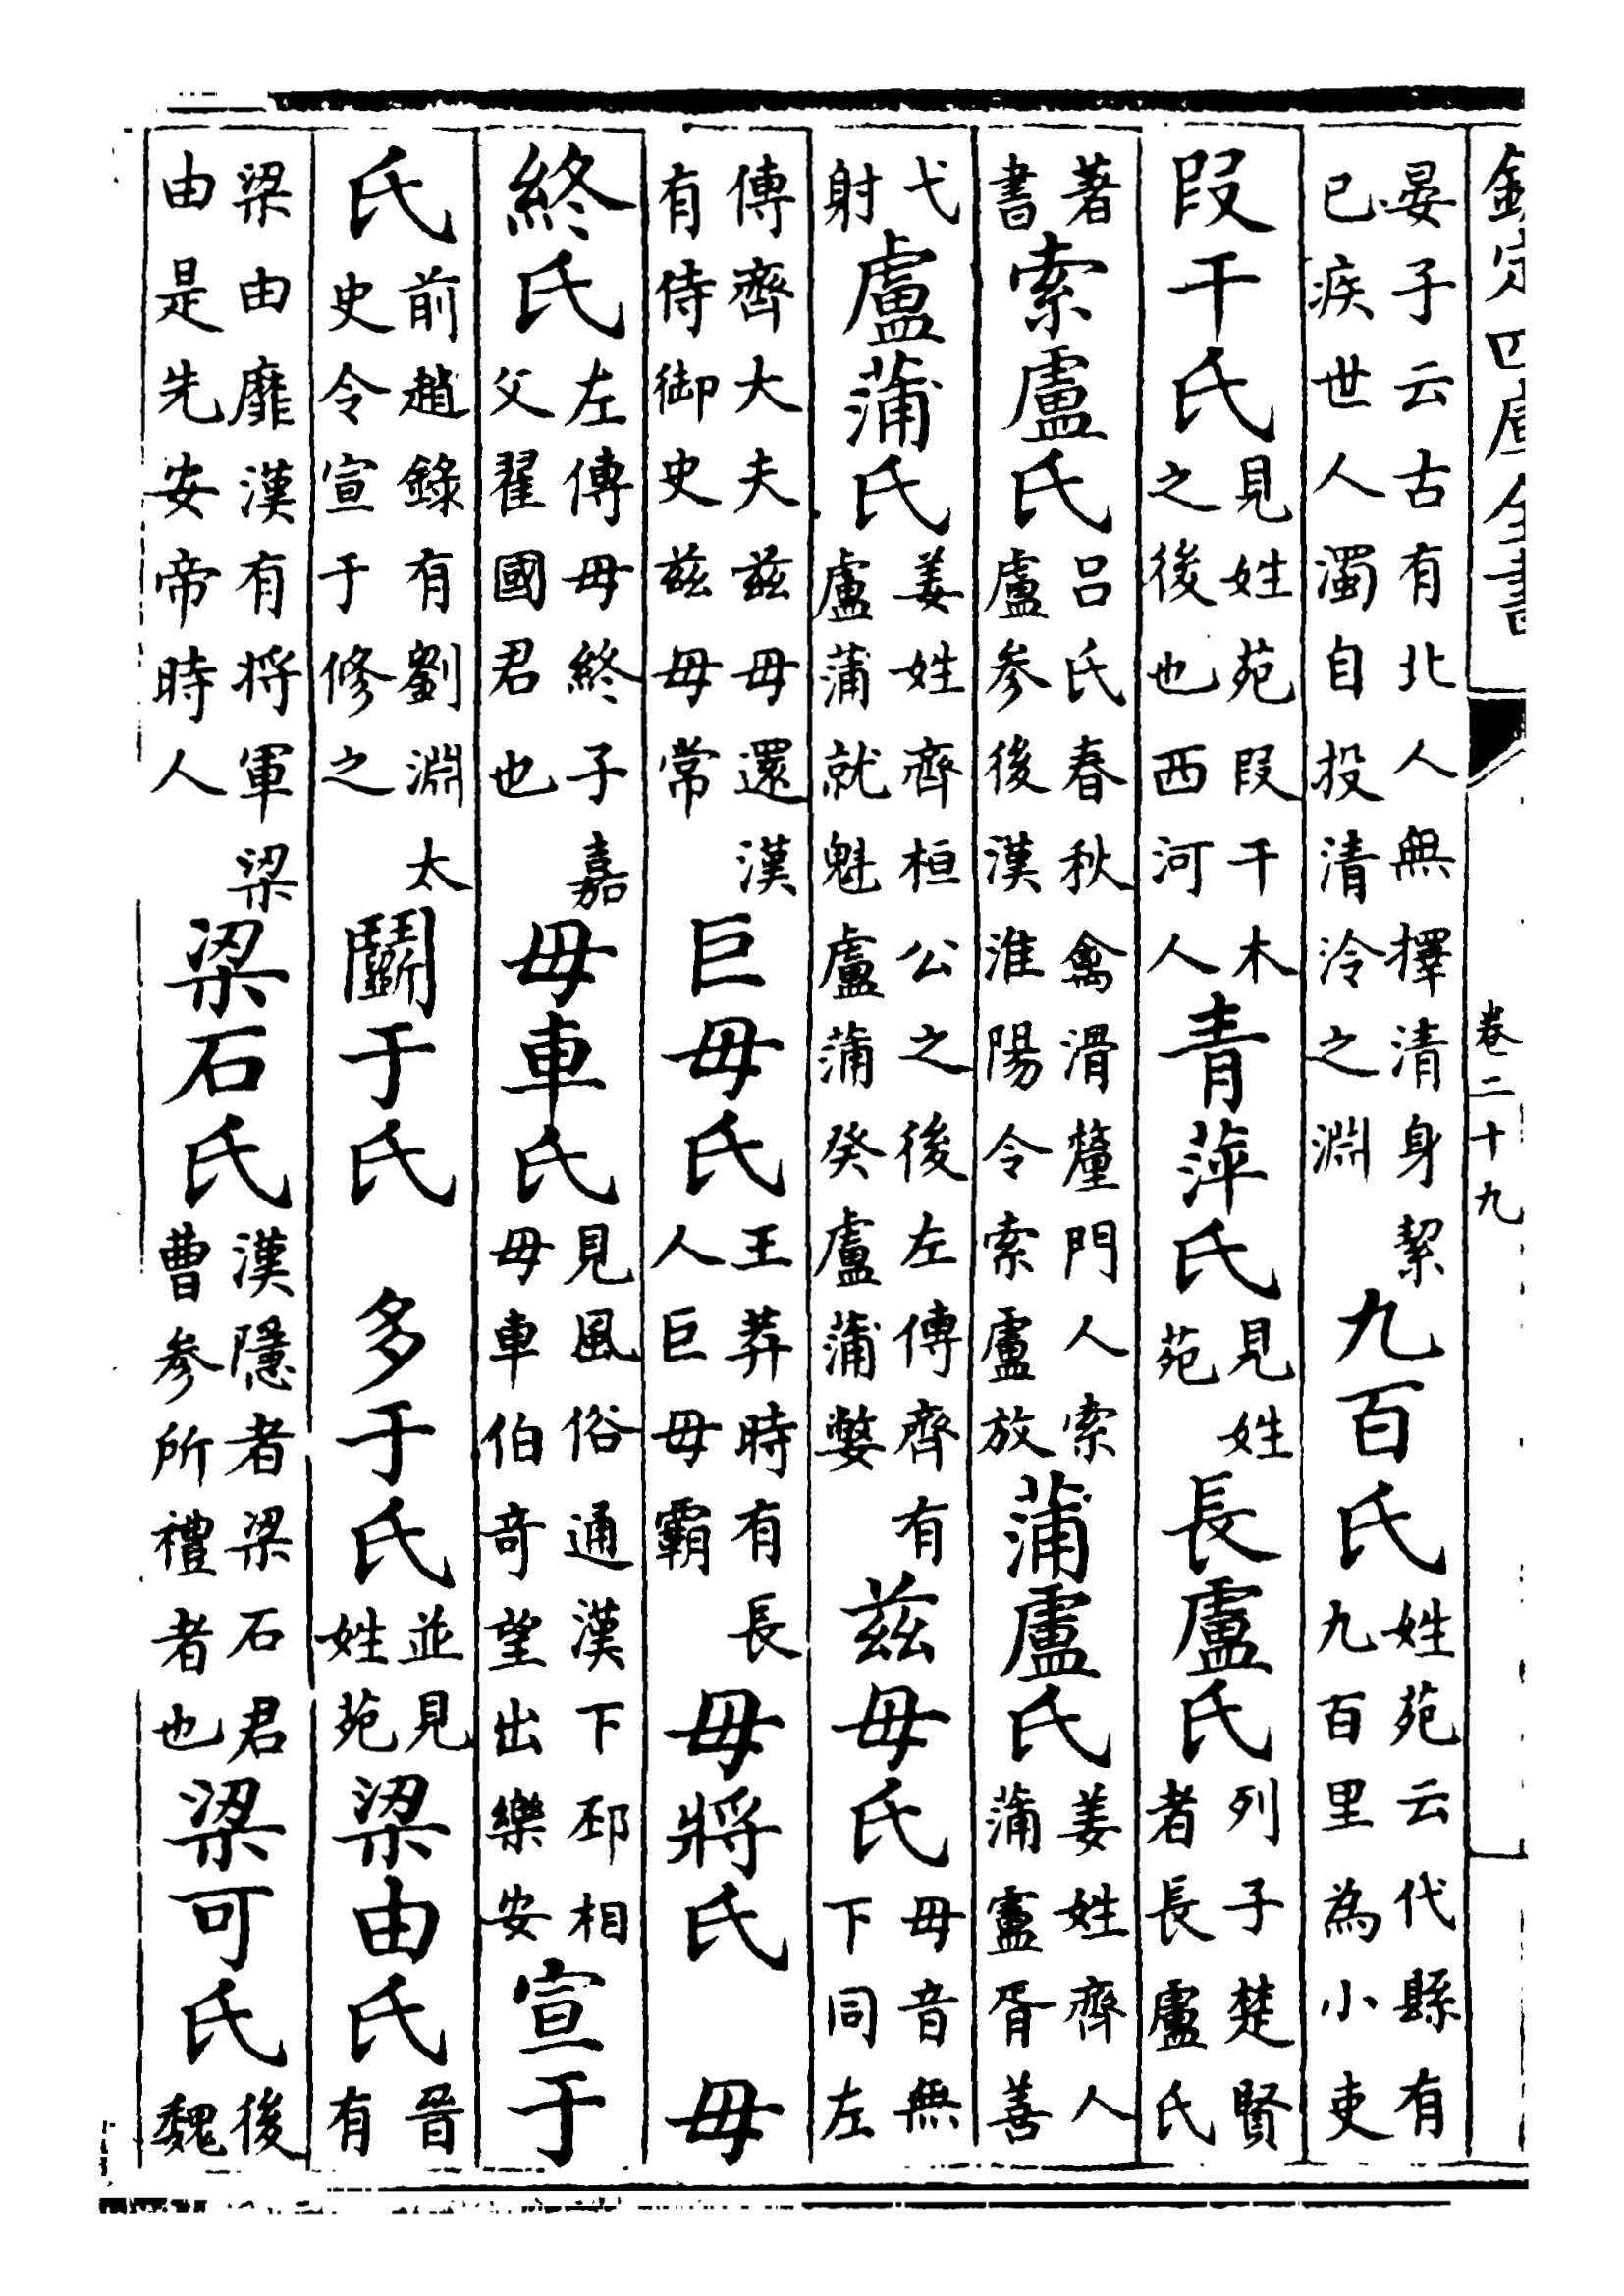 欽定四庫全書 卷二十九
晏子云古有北人無擇清身絜已疾世人濁自投清泠之淵九百氏姓苑云代縣有九百里為小吏
段干氏見姓苑段干木之後也西河人青萍氏見姓苑長盧氏列子楚賢者長盧氏
著書索盧氏呂氏春秋禽滑釐門人索盧参後漢淮陽令索盧放蒲盧氏姜姓齊人蒲盧胥善
弋射盧蒲氏姜姓齊桓公之後左傳齊有盧蒲就魁盧蒲癸盧蒲嫳茲毋氏毋音無下同左
傳齊大夫茲毋還漢有侍御史茲毋常巨毋氏王莽時有長人巨毋霸毋將氏 毋
終氏左傳毋終子嘉父翟國君也毋車氏見風俗通漢下邳相毋車伯奇望出樂安宣于
氏前趙錄有劉淵太史令宣于修之鬭于氏 多于氏並見姓苑梁由氏晉有
梁由靡漢有将軍梁由是先安帝時人梁石氏漢隱者梁石君曹参所禮者也梁可氏後魏